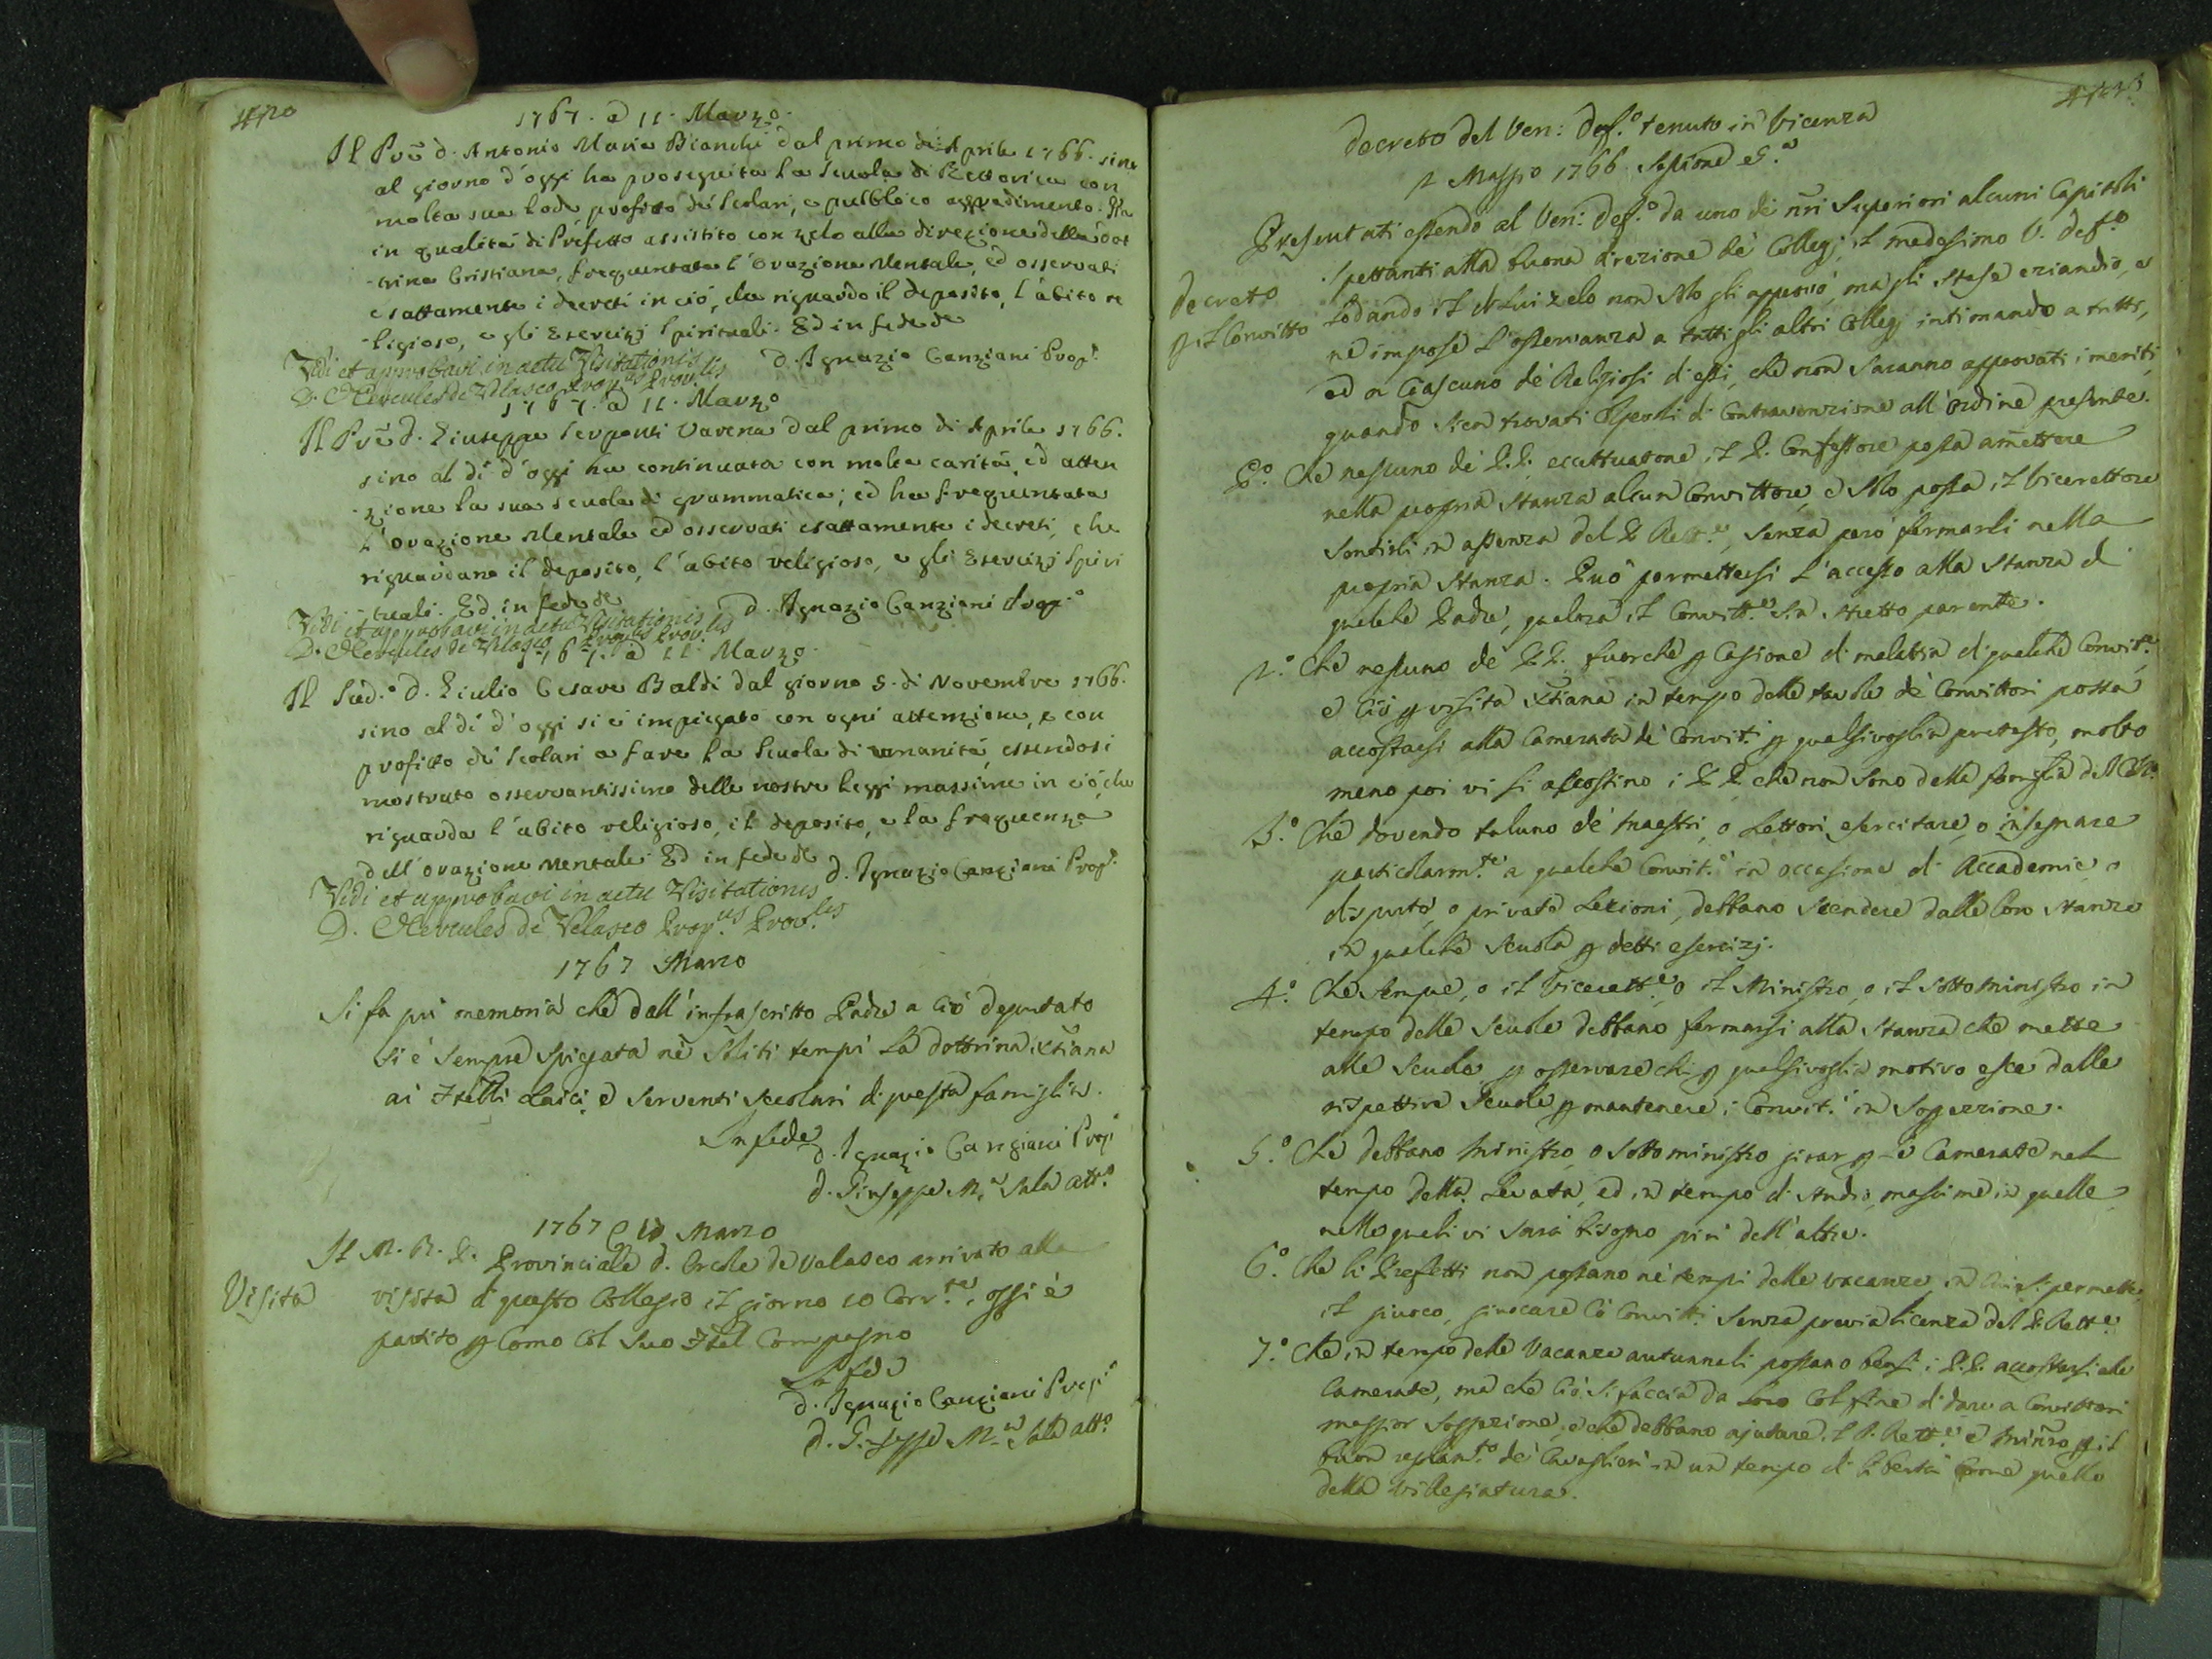 1767. a 11. Marzo.
Il Prē d. Antonio Maria Bianchi dal primo di Aprile 1766. sino
al giorno d'oggi ha proseguita la scuola di Rettorica con
molta sua lode, profitto de' scolari, e pubblico aggradimento. Ha
in qualità di Prefetto assistito con zelo alla direzione della dot
-trina Cristiana, frequentata l'Orazione Mentale, ed osservati
esattamente i decreti in ciò, che riguarda il deposito, l'abito re
-ligioso, e gli Esercizj Spirituali. Ed in fede de
d. Ignazio Canziani Prop.o
Vidi et approbavi in actu Visitationis
D. Hercules de Velasco Prop.us Prov.lis
1767. a 11. Marzo
Il Prē d. Giuseppe Serponti Varena dal primo di Aprile 1766.
sino al dì d'oggi ha continuata con molta carità, ed atten
-zione la sua scuola di grammatica; ed ha frequentata
l'orazione Mentale ed osservati esattamente i decreti, che
riguardano il deposito, l'abito religioso, e gli Esercizj Spiri
-tuali. Ed in fede de
d. Ignazio Canziani Prop.o
Vidi et approbavi in actu Visitationis
D. Hercules de Velasco Prop.us Prov.lis
1767. a 11. Marzo.
Il Sud.o d. Giulio Cesare Baldi dal giorno 5. di Novembre 1766.
sino al dì d'oggi si è impiegato con ogni attenzione, e con
profitto de' scolari a fare la scuola di umanità, essendosi
mostrato osservantissimo delle nostre leggi massime in ciò, che
riguarda l'abito religioso, il deposito, e la frequenza
dell'orazione Mentale. Ed in fede de
d. Ignazio Canziani Prop.o
Vidi et approbavi in actu Visitationis
D. Hercules de Velasco Prop.us Prov.lis
1767 Marzo
Si fa pur memoria che dall'infrascritto Padre a ciò deputato
si è sempre spiegata ne' soliti tempi la dottrina Xtiana
ai Frēlli Laici, e serventi secolari di questa famiglia.
In fede
d. Ignazio Canziani Prop.o
d. Giuseppe M.a Sala att.o
1767 Marzo
Il M. R. P. Provinciale d. Ercole de Velasco arrivato alla
Visita
visita di questo Collegio il giorno 10 Corr.te, oggi è
partito p Como col suo Frēl Compagno
In fede
d. Ignazio Canziani Prop.o
d. Giuseppe M.a Sala att.o
Decreto del Ven: Def.o tenuto in Vicenza
2 Maggio 1766. Sessione
Presentati essendo al Ven: Def.o da uno de' nr̄i Superiori alcuni Capitoli
spettanti alla buona direzione de' Collegj, il medesimo V. Def.o
Decreto p il Convitto
lodando il di lui zelo non solo gli approvò, ma gli stese eziandio, e
ne impose l'osservanza a tutti gli altri Collegj intimando a tutti,
ed a ciascuno de' Religiosi d'essi, che non saranno approvati i meriti,
quando sien trovati colpevoli di contravenzione all'ordine presente.
P.o Che nessuno de' P.P. eccettuatone il P. Confessore possa amēttere
nella propria stanza alcun Convittore, e solo possa il Vicerettore
sentirli in assenza del P. Rett.e, senza però fermarli nella
propria stanza. Può permettersi l'accesso alla stanza di
qualche Padre, qualora il Convitt.e sia stretto parente.
2.o Che nessuno de' P.P. fuorchè p cagione di malattia di qualche Convit.e
e ciò p visita Xtiana in tempo delle tavole de' Convittori possa
accostarsi alla Camerata de' Convit.i p qualsivoglia pretesto, molto
meno poi vi si accostino i P.P. che non sono della famiglia del Coll.o
3.o Che dovendo taluno de' Maestri, o Lettori esercitare, o insegnare
particolarm.te a qualche Convit.e in occasione di Accademie, o
dispute, o private Lezioni, debbano scendere dalle loro stanze
in qualche scuola p detti esercizj.
4.o Che sempre, o il Vicerett.e, o il Ministro, o il Sottoministro in
tempo delle scuole debbano fermarsi alla stanza che mette
alle scuole p osservare chi p qualsivoglia motivo esce dalle
rispettive scuole p mantenere i Convit.i in soggezione.
5.o Che debbano Ministro, o Sottoministro girar p le Camerate nel
tempo della Levata, ed in tempo di studio, massime in quelle,
nelle quali vi sarà bisogno più dell'altre.
6.o Che li Prefetti non possano ne' tempi delle vacanze, in cui si permette
il giuoco, giuocare co' Convitti. senza previa licenza del P. Rett.e
7.o Che in tempo delle Vacanze autunnali possano bensì i P.P. accostarsi alle
Camerate, ma che ciò si faccia da loro col fine di dare a Convittori
maggior soggezione, e che debbano ajutare il P. Rett.e, e Minrō p il
buon regolam.to de' Cavaglieri in un tempo di libertà come quello
della villegiatura.